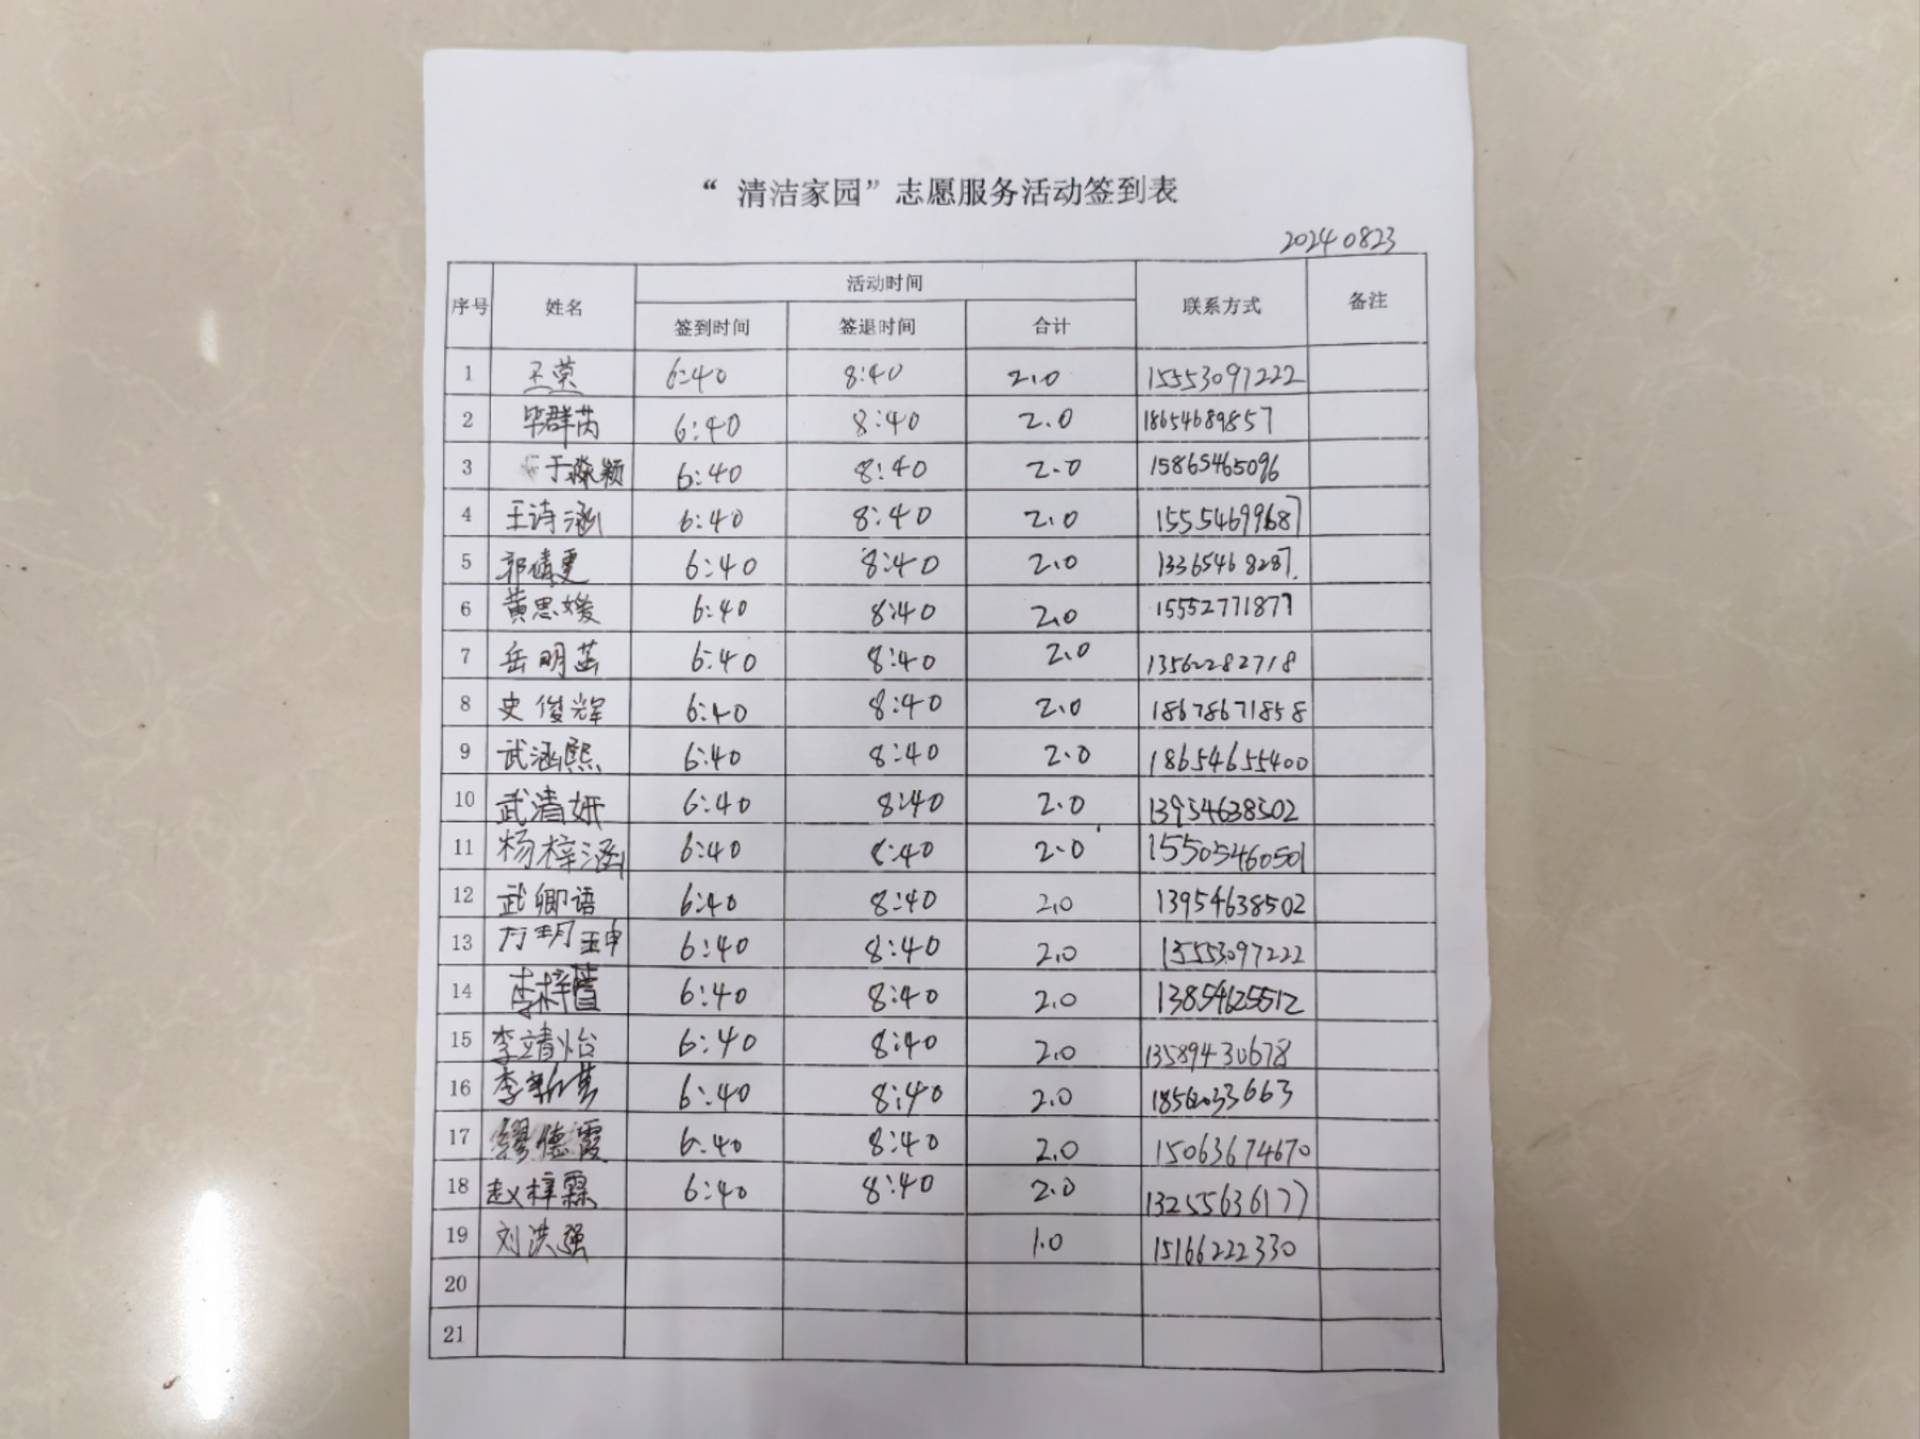 “清洁家园”志愿服务活动签到表
20240823
序号 姓名 活动时间 联系方式 备注
签到时间 签退时间 合计
1 王荣 6:40 8:40 2.0 15553097222
2 毕群芮 6:40 8:40 2.0 18654689857
3 于淼颖 6:40 8:40 2.0 15865465096
4 王诗涵 6:40 8:40 2.0 15554699687
5 6:40 8:40 2.0 13365468287
6 黄思媛 6:40 8:40 2.0 15552771877
7 岳明茁 6:40 8:40 2.0 13562282718
8 史俊辉 6:40 8:40 2.0 18678671858
9 武涵熙 6:40 8:40 2.0 18654655400
10 武清妍 6:40 8:40 2.0 13954638502
11 杨梓涵 6:40 8:40 2.0 15505460501
12 武卿语 6:40 8:40 2.0 13954638502
13 万玥珅 6:40 8:40 2.0 15553097222
14 李梓萱 6:40 8:40 2.0 13854625512
15 李靖怡 6:40 8:40 2.0 13589430678
16 6:40 8:40 2.0
17 缪德霞 6:40 8:40 2.0 15063674670
18 赵梓霖 6:40 8:40 2.0 13255636177
19 刘洪强 1.0 15166222330
20
21